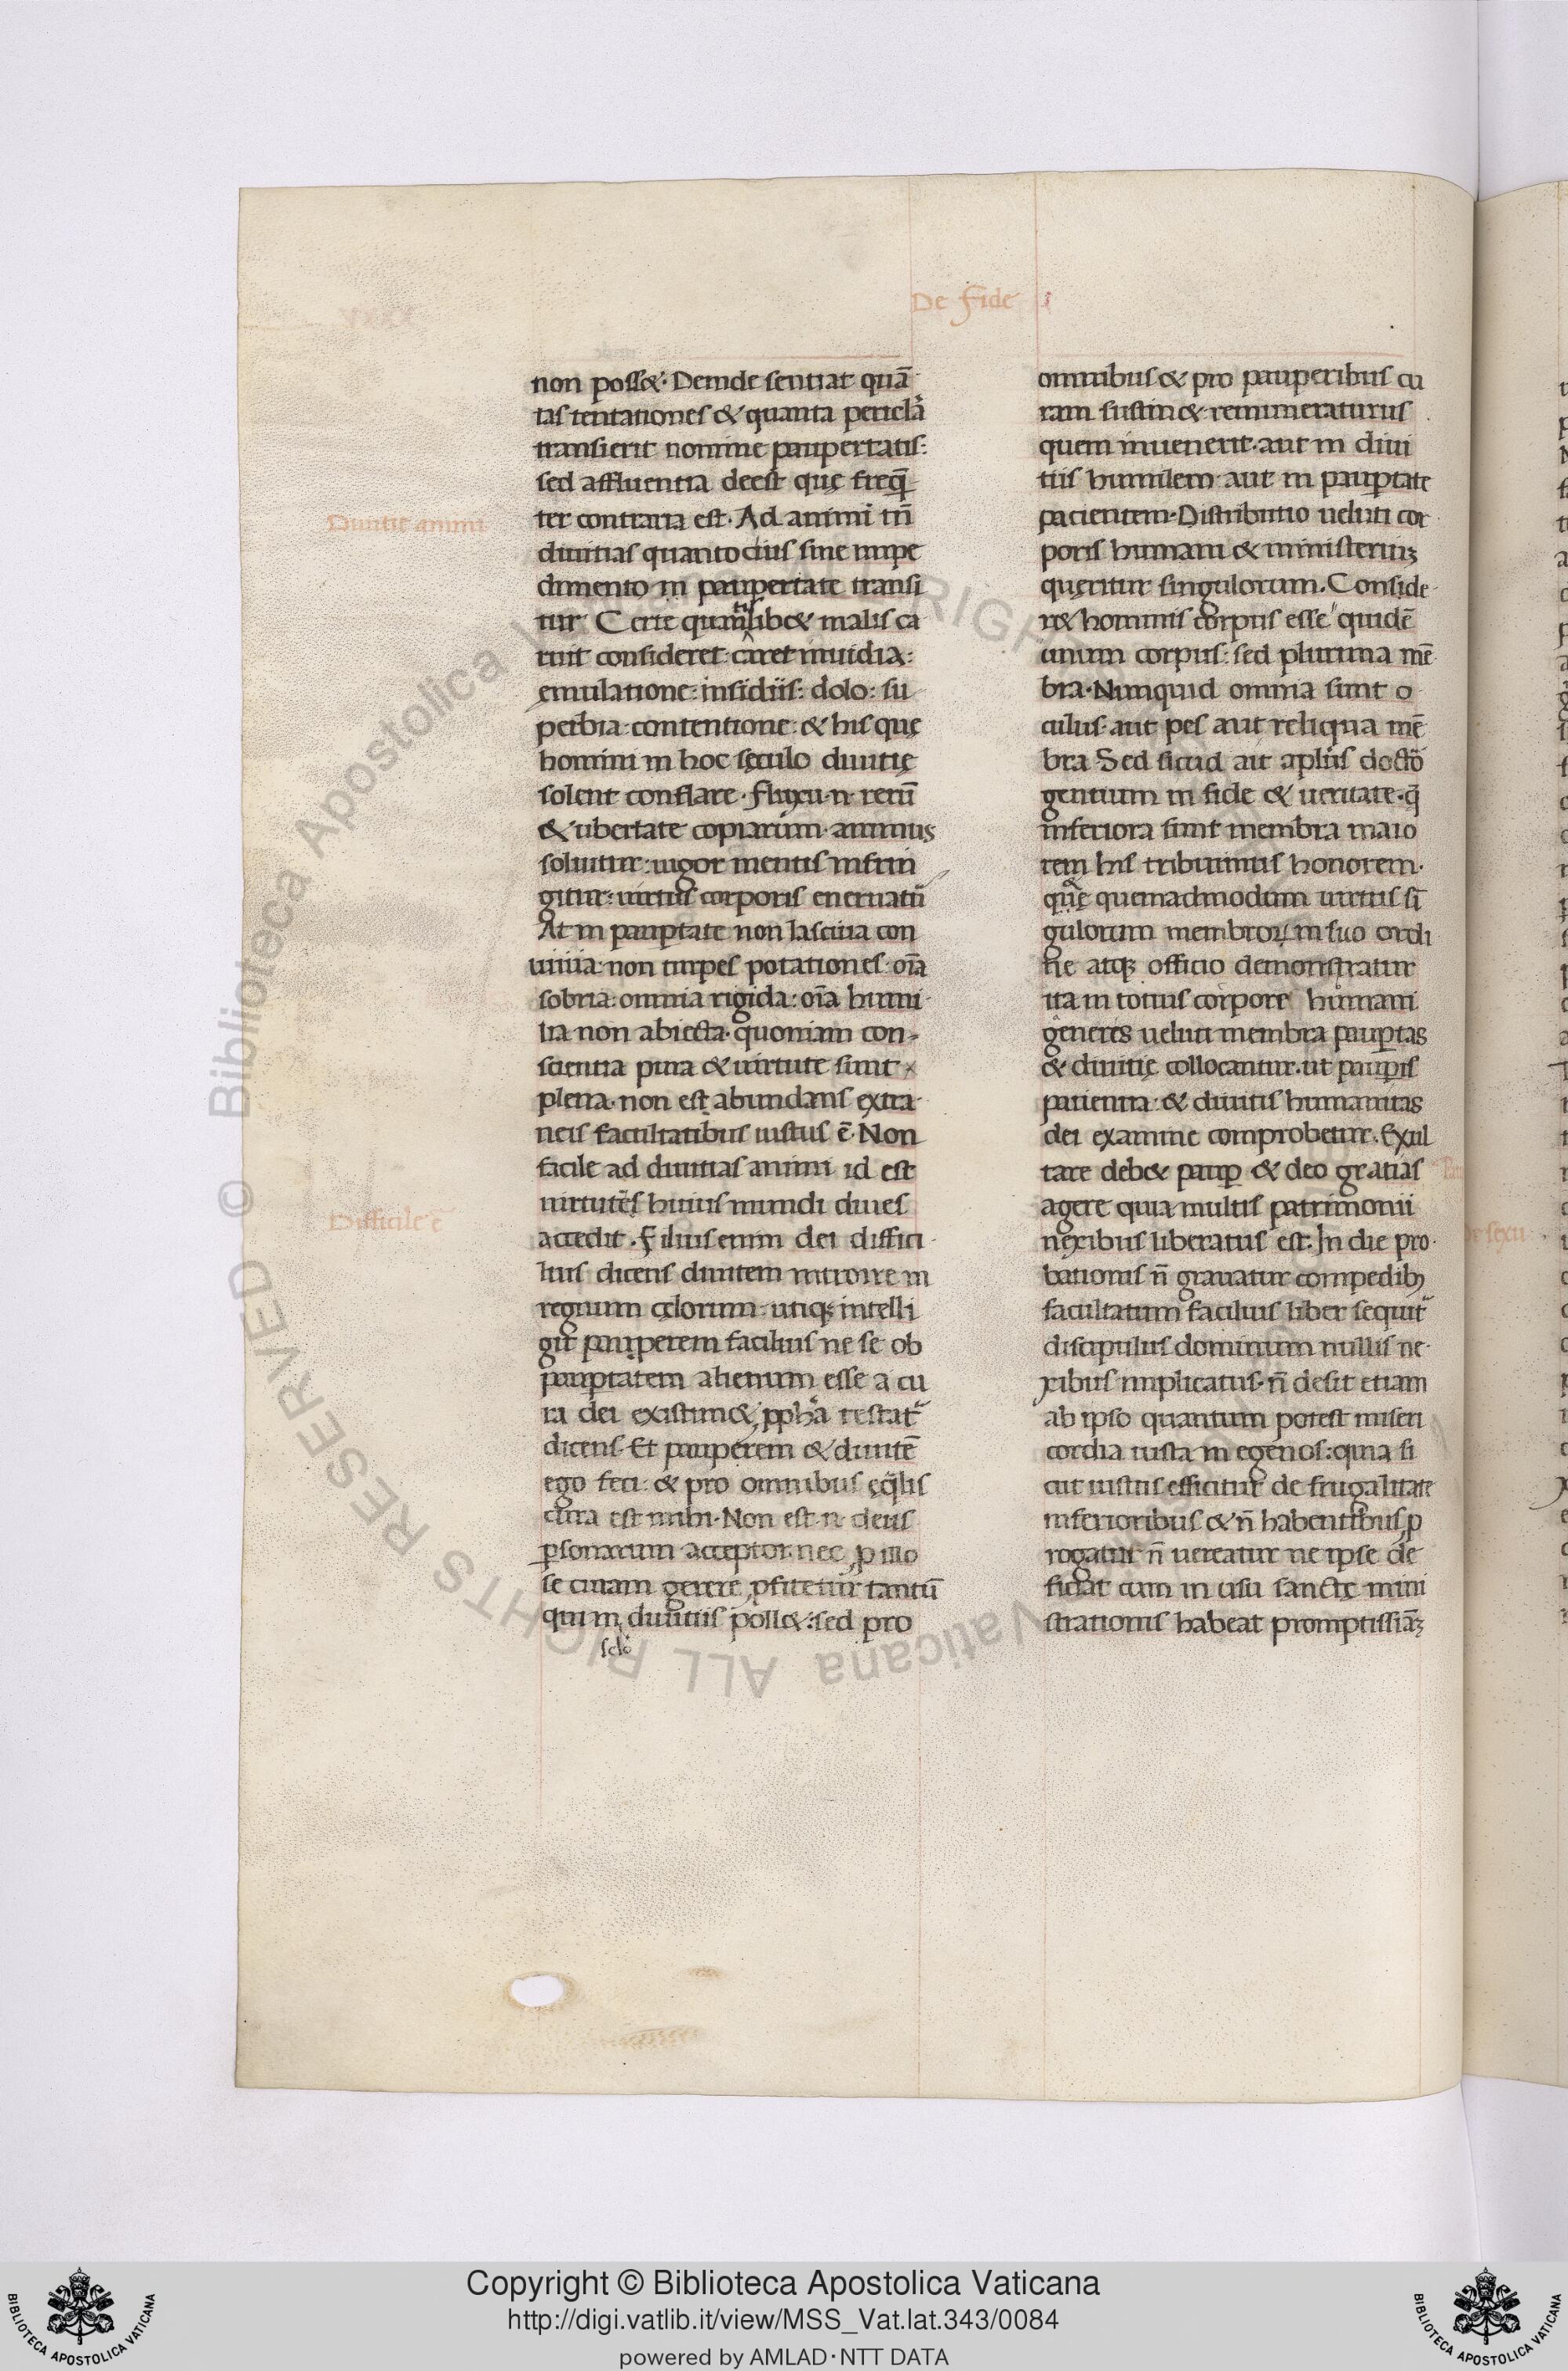 De Fide i
non poss&. Deinde sentiat quā
tas tentationes & quanta pericla
transierit nomine paupertatis:
sed affluentia deest quę freq̄
ter contraria est. Ad animi tn̄
Diuitie animi
diuitias quantocius sine impe
dimento in paupertate transi
tur. Certe quantislib& malis ca
ruit consideret. caret inuidia:
emulatione: insidiis: dolo: su
perbia: contentione: & his quę
homini in hoc sęculo diuitię
solent conflare. Fluxu .n. rerū
& ubertate copiarum animus
soluitur: uigor mentis infrin
gitur: uirtus corporis eneruatur̄
At in paup̱tate non lasciua con
uiuia: non turpes potationes. oīa
sobria: omnia rigida: oīa humi
lia non abiecta. quoniam con-
scientia pura & uirtute sunt
plena. non est abundans extra
neis facultatibus iustus ē. Non
facile ad diuitias animi id est
uirtutes huius mundi diues
Difficile ē
accedit. Filius enim dei diffici
lius dicens diuitem introire in
regnum cęlorum. utiq; intelli
git pauperem facilius ne se ob
paup̱tatem alienum esse a cu
ra dei existim& ꝓpha testat̄
dicens. Et pauperem & diuitē
ego feci: & pro omnibus ęq̄lis
cura est mihi. Non est .n. deus
ꝑsonarum acceptor. nec ꝓ illo
se curam gerere ꝓfitetur tantū
qui in diuitiis poll&: sed pro
sclō
omnibus & pro pauperibus cu
ram sustin& remuneraturus
quem inuenerit. aut in diui
tiis humilem aut in pauꝑtate
pacientem. Distributio ueluti cor
poris humani & ministeriuꝫ
quęritur singulorum. Conside
r& hominis corpus esse quidē
unum corpus: sed plurima mē
bra. Nunquid omnia sunt o
culus. aut pes aut reliqua mē
bra. Sed sicud ait apłus doctō
gentium in fide & ueritate. q̄
inferiora sunt membra maio
rem his tribuimus honorem.
quemadmodum uirtus sī
gulorum membroꝝ in suo ordi
ne atq; officio demonstratur
ita in totius corpore humani
generis ueluti membra pauꝑtas
& diuitię collocantur. ut pauꝑis
patientia: & diuitis humanitas
dei examine comprobetur. Exul
tare deb& pauꝑ & deo gratias
agere quia multis patrimonii
nexibus liberatus est. In die pro
bationis n̄ grauatur compedibꝫ
facultatum facilius liber sequit̄
discipulus dominum nullis ne
xibus implicatus. n̄ desit etiam
ab ipso quantum potest miseri
cordia iusta in egenos: quia si
cut iustus efficitur de frugalitate
inferioribus & n̄ habentibus ꝓ
rogatur n̄ uereatur ne ipse de
ficiat cum in usu sanctę mini
strationis habeat promptissiāꝫ
© Biblioteca Apostolica Vaticana ALL RIGHTS RESERVED
Copyright © Biblioteca Apostolica Vaticana
http://digi.vatlib.it/view/MSS_Vat.lat.343/0084
powered by AMLAD·NTT DATA
BIBLIOTECA APOSTOLICA VATICANA
BIBLIOTECA APOSTOLICA VATICANA